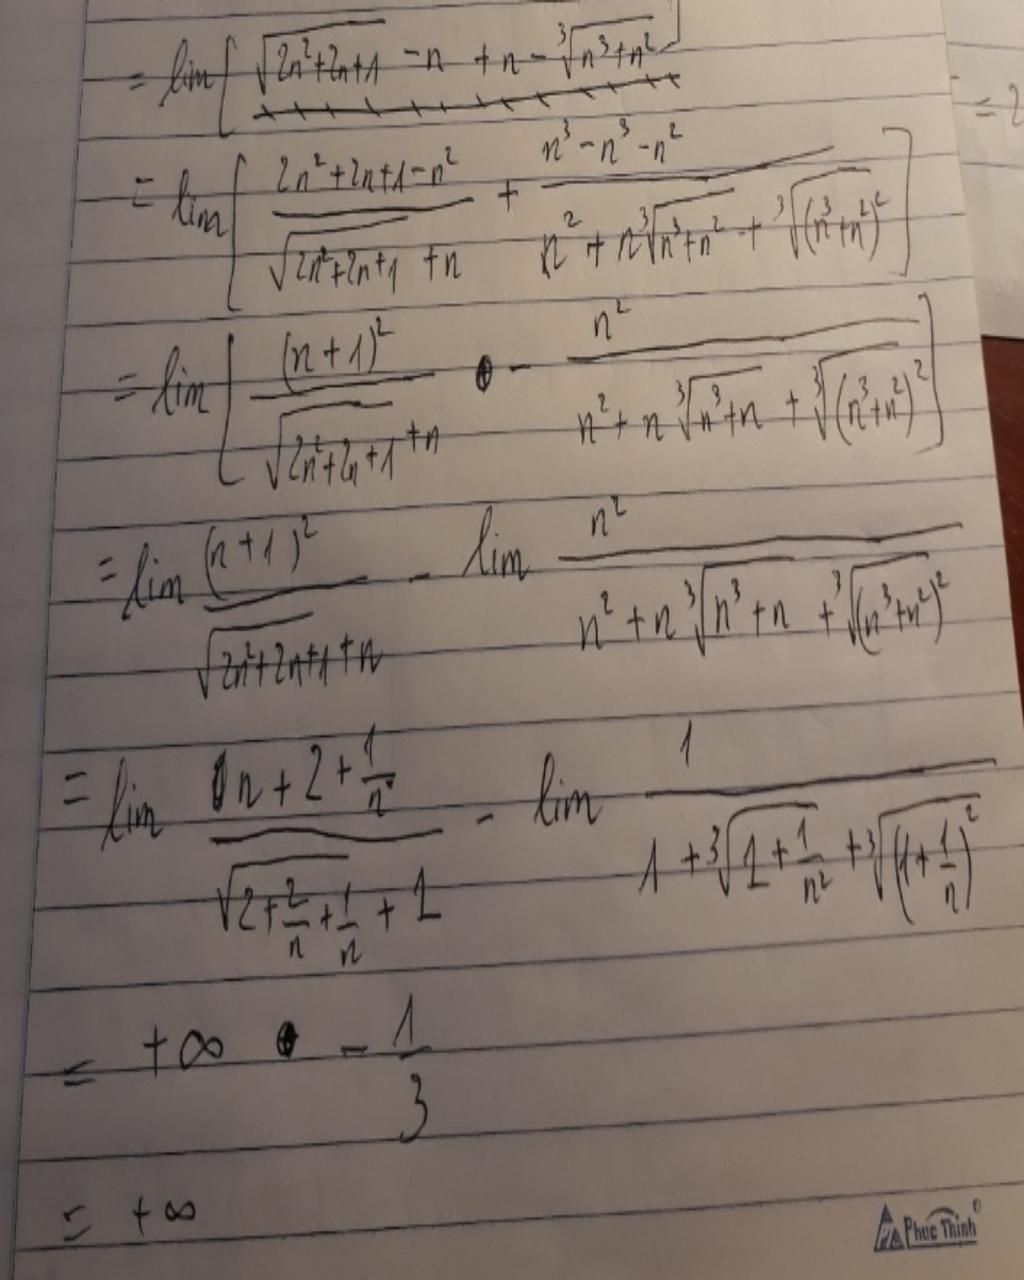 = lim[ √(2n²+2n+1) - n + n - ∛(n³+n²) ]
= 2
= lim[ (2n²+2n+1-n²)/(√(2n²+2n+1) + n) + (n³-n³-n²)/(n² + n∛(n³+n²) + ∛((n³+n²)²)) ]
= lim[ (n+1)²/(√(2n²+2n+1) + n) - n²/(n² + n∛(n³+n) + ∛((n³+n²)²)) ]
= lim (n+1)²/(√(2n²+2n+1) + n) - lim n²/(n² + n∛(n³+n) + ∛((n³+n²)²))
= lim (n+2+1/n)/(√(2+2/n+1/n) + 1) - lim 1/(1 + ∛(1+1/n²) + ∛((1+1/n)²))
= +∞ - 1/3
= +∞
Phuc Thinh